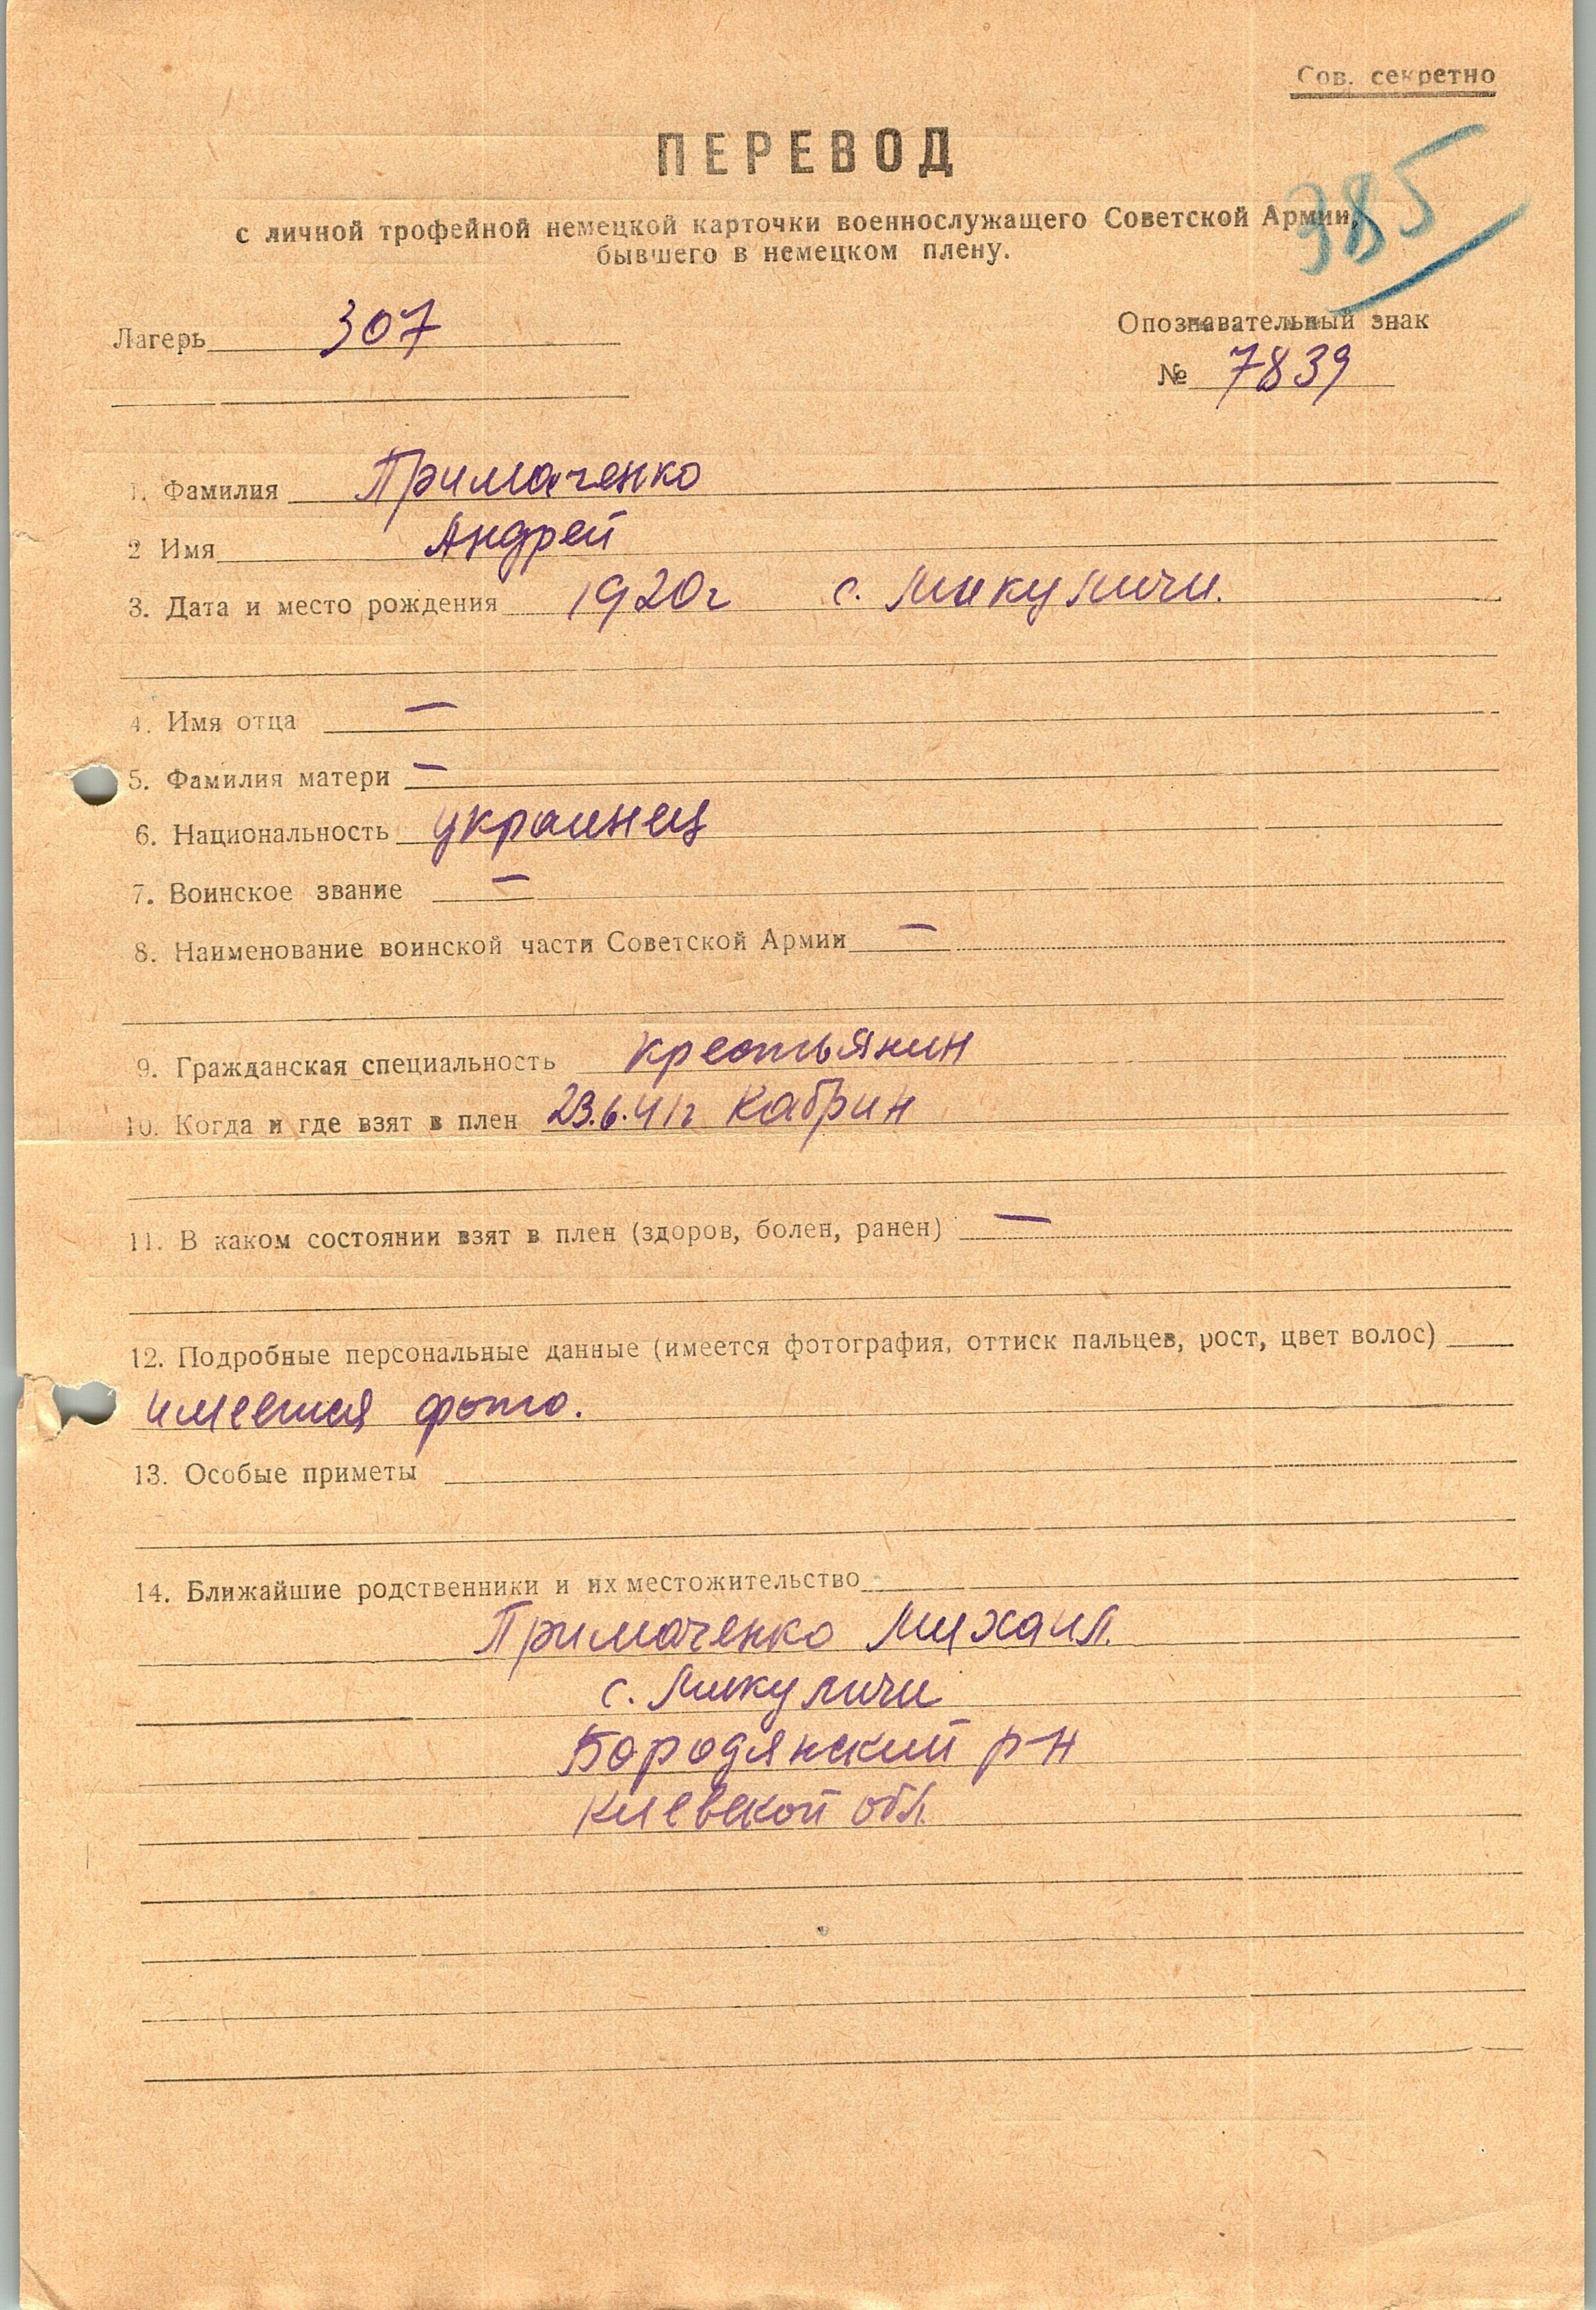 Сов. секретно
ПЕРЕВОД
385
с личной трофейной немецкой карточки военнослужащего Советской Армии,
бывшего в немецком плену.
Лагерь 307
Опознавательный знак
№ 7839
1. Фамилия Примаченко
2 Имя Андрей
3. Дата и место рождения 1920г с. Микуличи.
4. Имя отца —
5. Фамилия матери —
6. Национальность украинец
7. Воинское звание —
8. Наименование воинской части Советской Армии —
9. Гражданская специальность крестьянин
10. Когда и где взят в плен 23.6.41г Кабрин
11. В каком состоянии взят в плен (здоров, болен, ранен) —
12. Подробные персональные данные (имеется фотография, оттиск пальцев, рост, цвет волос)
имеется фото.
13. Особые приметы
14. Ближайшие родственники и их местожительство
Примаченко Михаил.
с. Микуличи
Бородянский р-н
Киевской обл.